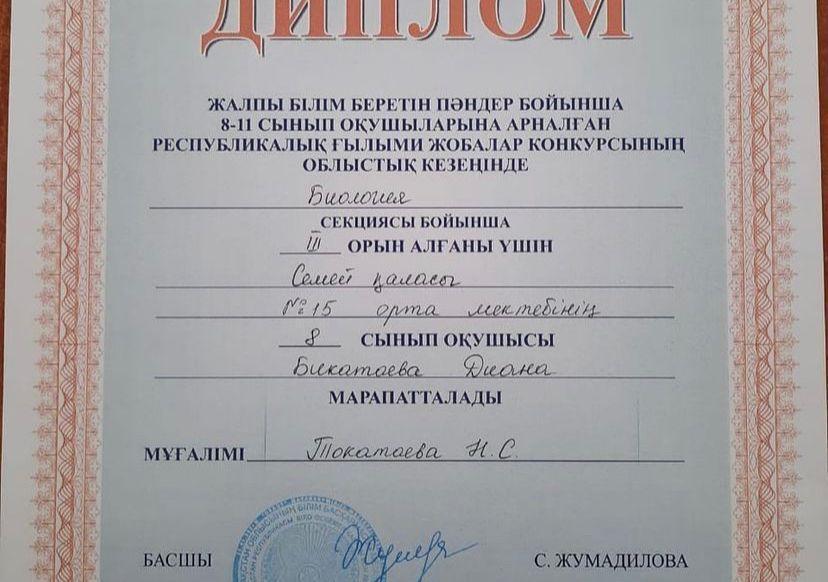 ДИПЛОМ
ЖАЛПЫ БІЛІМ БЕРЕТІН ПӘНДЕР БОЙЫНША
8-11 СЫНЫП ОҚУШЫЛАРЫНА АРНАЛҒАН
РЕСПУБЛИКАЛЫҚ ҒЫЛЫМИ ЖОБАЛАР КОНКУРСЫНЫҢ
ОБЛЫСТЫҚ КЕЗЕҢІНДЕ
Биология
СЕКЦИЯСЫ БОЙЫНША
III ОРЫН АЛҒАНЫ ҮШІН
Семей қаласы
№15 орта мектебінің
8 СЫНЫП ОҚУШЫСЫ
Бикатаева Диана
МАРАПАТТАЛАДЫ
МҰҒАЛІМІ Токатаева Н.С.
БАСШЫ С. ЖУМАДИЛОВА